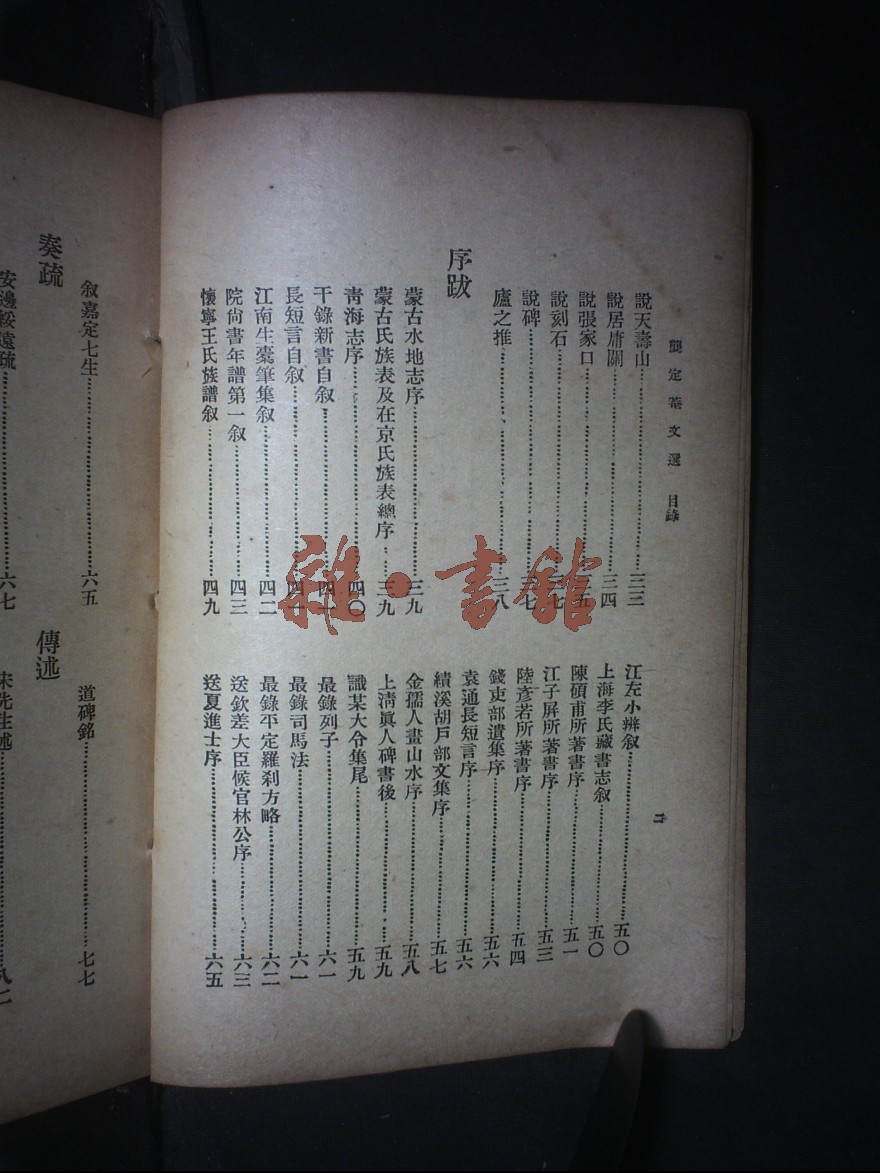 龔定菴文選 目錄
二
說天壽山……三三
說居庸關……三四
說張家口……三五
說刻石……三七
說碑……三七
廬之推……三八
序跋
蒙古水地志序……三九
蒙古氏族表及在京氏族表總序……三九
青海志序……四〇
干錄新書自叙……四一
長短言自叙……四一
江南生橐筆集叙……四二
院尙書年譜第一叙……四三
懷寧王氏族譜叙……四九
江左小辨叙……五〇
上海李氏藏書志叙……五〇
陳碩甫所著書序……五一
江子屏所著書序……五三
陸彥若所著書序……五四
錢吏部遺集序……五六
袁通長短言序……五六
績溪胡戶部文集序……五七
金孺人畫山水序……五八
上淸眞人碑書後……五九
識某大令集尾……五九
最錄列子……六一
最錄司馬法……六一
最錄平定羅刹方略……六二
送欽差大臣候官林公序……六三
送夏進士序……六五
叙嘉定七生……六五
奏疏
安邊綏遠疏……六七
道碑銘……七七
傳述
宋先生述……八二
雜·書館